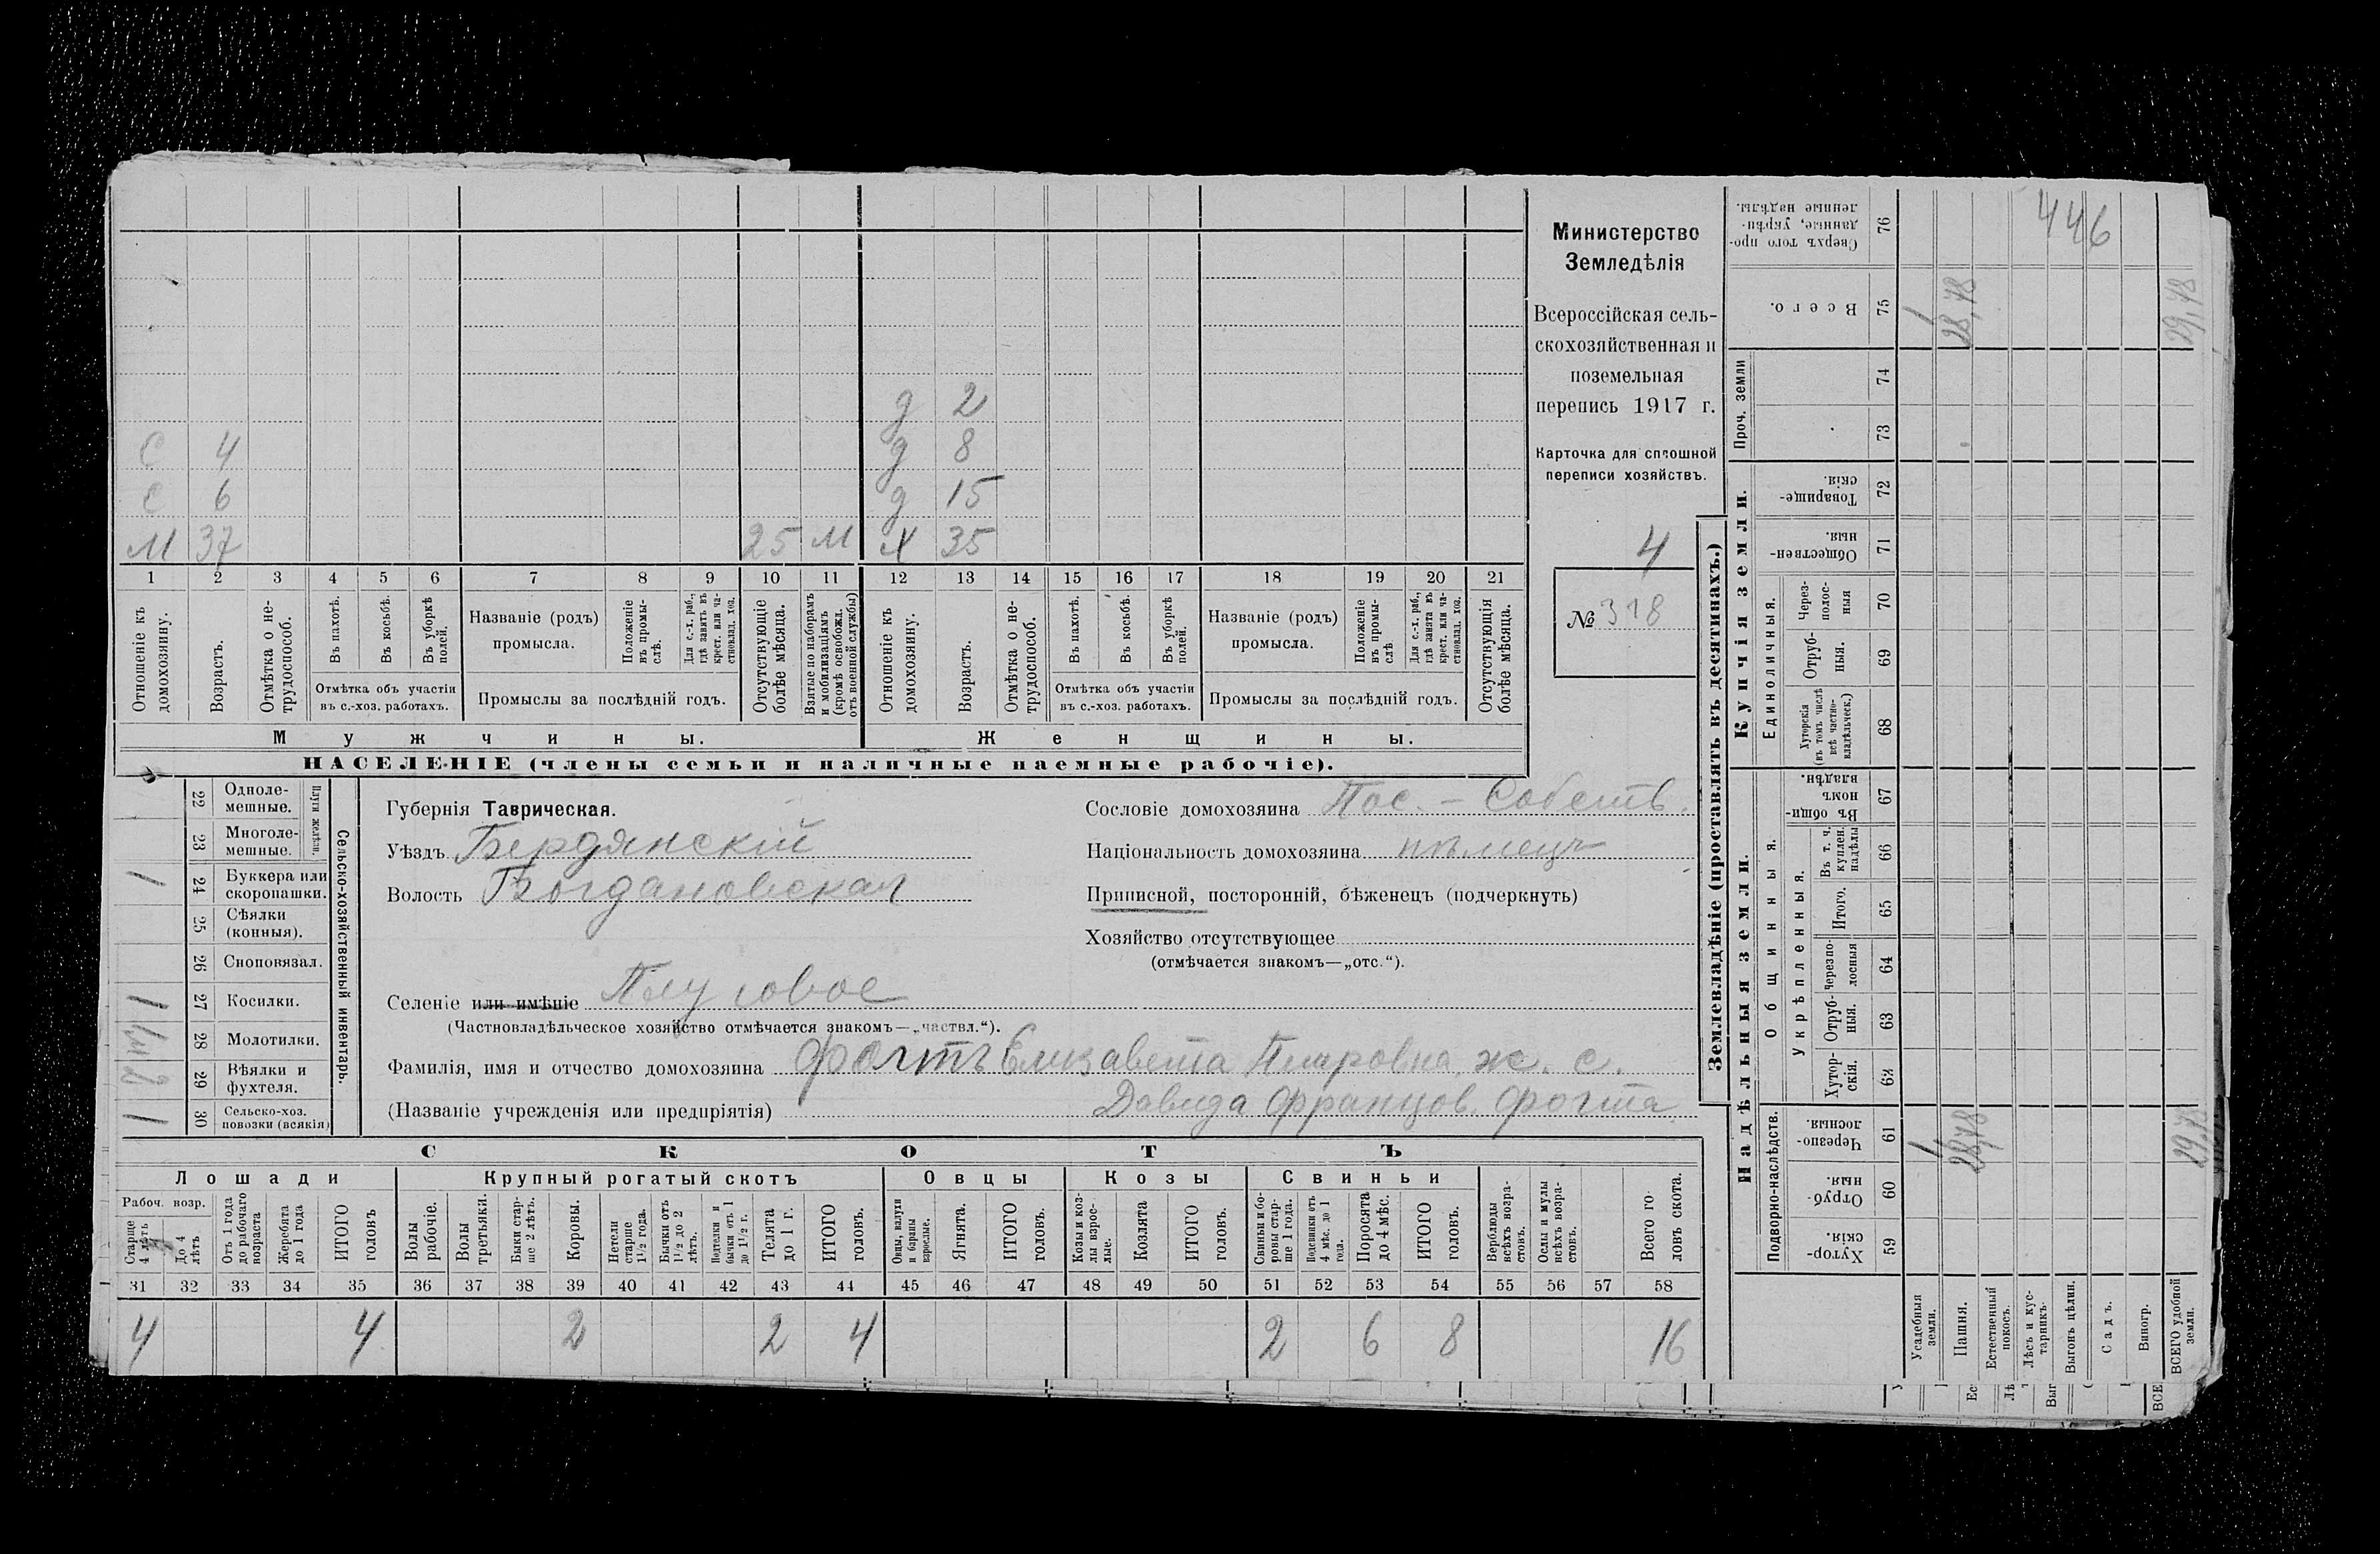 Министерство
Земледѣлія
Всероссійская сель-
скохозяйственная и
поземельная
перепись 1917 г.
Карточка для сплошной
переписи хозяйствъ.
4
№ 318
д 2
С 4 д 8
С 6 д 15
М 37 25 М Х 35
1 2 3 4 5 6 7 8 9 10 11 12 13 14 15 16 17 18 19 20 21
Отношеніе къ домохозяину.
Возрастъ.
Отмѣтка о не-трудоспособ.
Въ пахотѣ.
Въ косьбѣ.
Въ уборкѣ полей.
Отмѣтка объ участіи
въ с.-хоз. работахъ.
Названіе (родъ)
промысла.
Положеніе въ промы-слѣ.
Для с.-х. раб., гдѣ занятъ въ крест. или ча-стновлад. хоз.
Промыслы за послѣдній годъ.
Отсутствующіе болѣе мѣсяца.
Взятые по наборамъ и мобилизаціямъ (кромѣ освобожд. отъ военной службы)
Отношеніе къ домохозяину.
Возрастъ.
Отмѣтка о не-трудоспособ.
Въ пахотѣ.
Въ косьбѣ.
Въ уборкѣ полей.
Отмѣтка объ участіи
въ с.-хоз. работахъ.
Названіе (родъ)
промысла.
Положеніе въ промы-слѣ
Для с.-х. раб., гдѣ занята въ крест. или ча-стновлад. хоз.
Промыслы за послѣдній годъ.
Отсутствующія болѣе мѣсяца.
Мужчины. Женщины.
НАСЕЛЕНІЕ (члены семьи и наличные наемные рабочіе).
22 Одноле-мешные.
23 Многоле-мешные.
Плуги желѣзн.
1 24 Буккера или скоропашки.
25 Сѣялки (конныя).
26 Сноповязал.
1 27 Косилки.
28 Молотилки.
29 Вѣялки и фухтеля.
1 30 Сельско-хоз. повозки (всякія)
Сельско-хозяйственный инвентарь.
Губернія Таврическая.
Уѣздъ Бердянскій
Волость Богдановская
Селеніе или имѣніе Плуговое
(Частновладѣльческое хозяйство отмѣчается знакомъ—„частвл.“).
Сословіе домохозяина Пос. - Собств.
Національность домохозяина нѣмецъ
Приписной, посторонній, бѣженецъ (подчеркнуть)
Хозяйство отсутствующее
(отмѣчается знакомъ—„отс.“).
Фамилія, имя и отчество домохозяина Фогтъ Елизавета Петровна ж. с.
(Названіе учрежденія или предпріятія) Давида Францов. Фогта
СКОТЪ
Лошади Крупный рогатый скотъ Овцы Козы Свиньи
Рабоч. возр.
Старше 4 лѣтъ
До 4 лѣтъ
Отъ 1 года до рабочаго возраста
Жеребята до 1 года
ИТОГО головъ
Волы рабочіе.
Волы третьяки.
Быки стар-ше 2 лѣтъ.
Коровы.
Нетели старше 1½ года.
Бычки отъ 1½ до 2 лѣтъ.
Подтелки и бычки отъ 1 до 1½ г.
Телята до 1 г.
ИТОГО головъ.
Овцы, валухи и бараны взрослые.
Ягнята.
ИТОГО головъ.
Козы и коз-лы взрос-лые.
Козлята
ИТОГО головъ.
Свиньи и бо-ровы стар-ше 1 года.
Подсвинки отъ 4 мѣс. до 1 года.
Поросята до 4 мѣс.
ИТОГО головъ.
Верблюды всѣхъ возра-стовъ.
Ослы и мулы всѣхъ возра-стовъ.
Всего го-ловъ скота.
31 32 33 34 35 36 37 38 39 40 41 42 43 44 45 46 47 48 49 50 51 52 53 54 55 56 57 58
4 4 2 2 4 2 6 8 16
Землевладѣніе (проставлять въ десятинахъ.)
Купчія земли.
Надѣльныя земли.
Сверхъ того про-данные, укрѣп-ленные надѣлы. 76
446
Всего. 75 1 28,78 29,78
Проч. земли
74
73
Товарище-скія. 72
Обществен-ныя. 71
Единоличныя.
Черезполос-ныя 70
Отруб-ныя. 69
Хуторскія (въ томъ числѣ всѣ частно-владѣльческ.) 68
Общинныя.
Въ общин-номъ владѣн. 67
Укрѣпленныя.
Въ т. ч. куплен. надѣлы 66
Итого. 65
Черезпо-лосныя 64
Отруб-ныя. 63
Хутор-скія. 62
Подворно-наслѣдств.
Черезпо-лосныя. 61 1 28,78 29,78
Отруб-ныя. 60
Хутор-скія. 59
Усадебныя земли.
Пашня.
Естественный покосъ.
Лѣсъ и кус-тарникъ.
Выгонъ цѣлин.
Садъ.
Виногр.
ВСЕГО удобной земли.